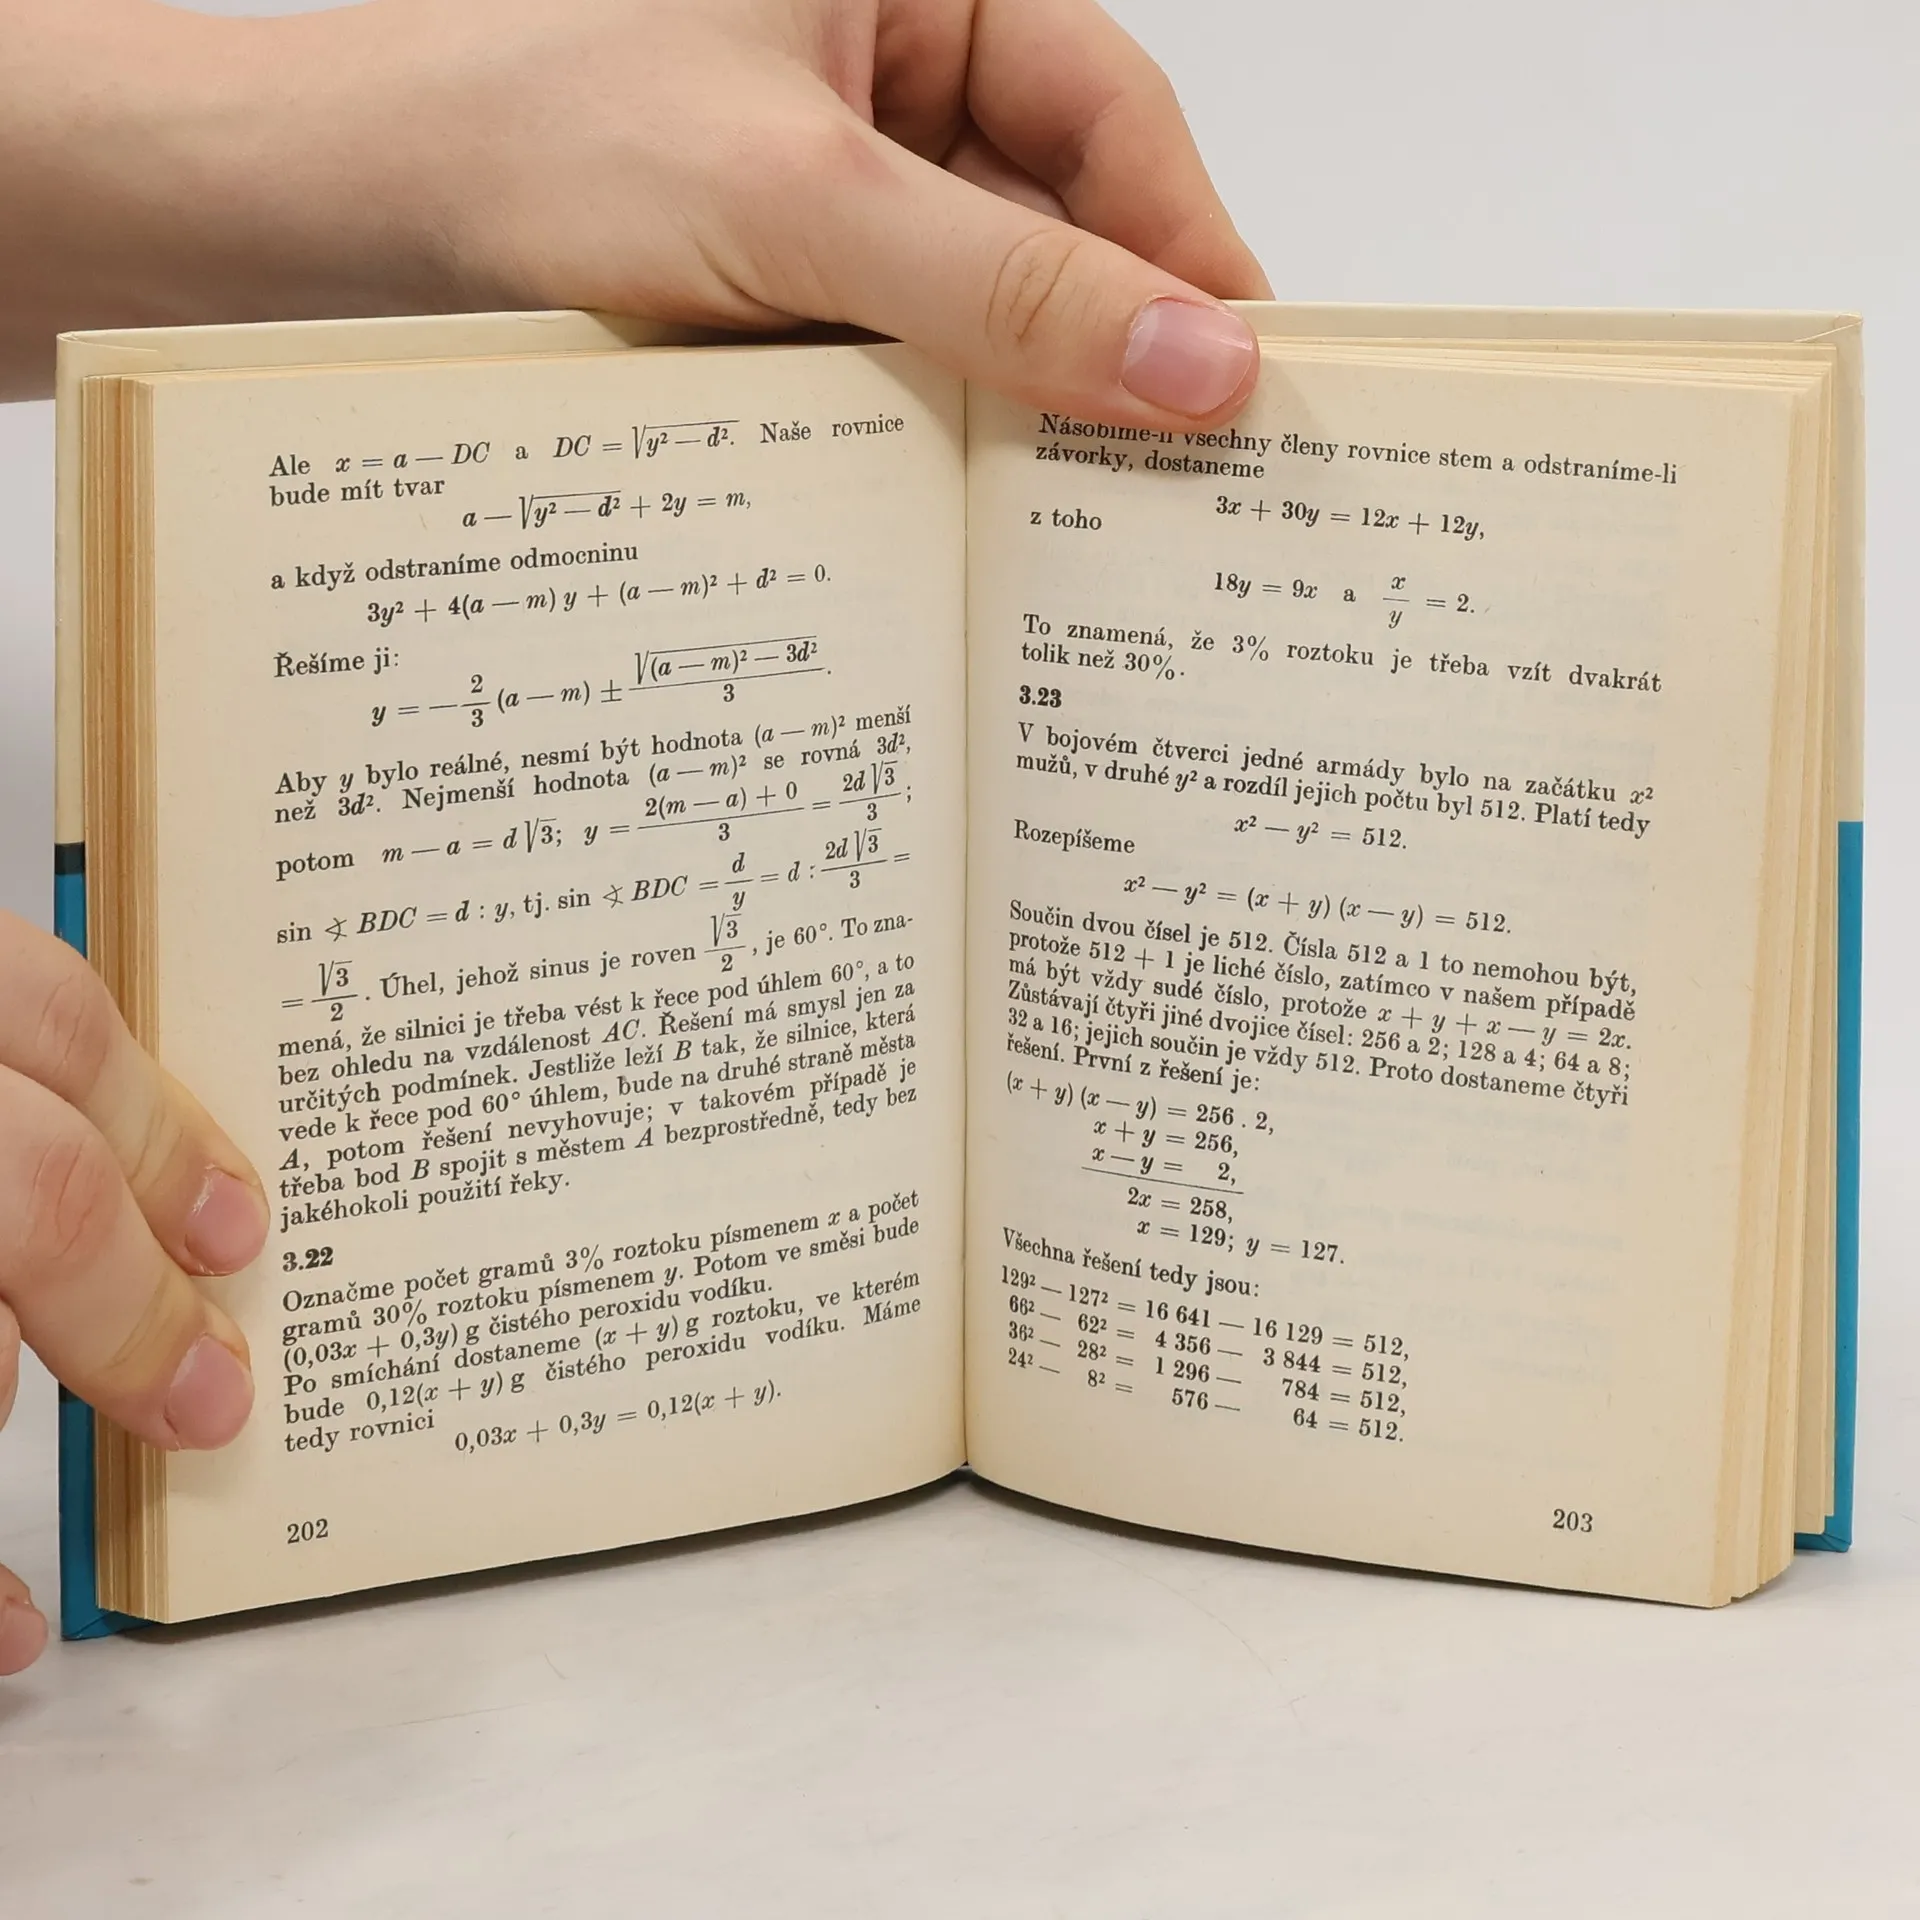 Ale x = a — DC a DC = √(y² — d²). Naše rovnice
bude mít tvar
a — √(y² — d²) + 2y = m,
a když odstraníme odmocninu
3y² + 4(a — m) y + (a — m)² + d² = 0.
Řešíme ji:
y = — 2/3 (a — m) ± √((a — m)² — 3d²)/3 .
Aby y bylo reálné, nesmí být hodnota (a — m)² menší
než 3d². Nejmenší hodnota (a — m)² se rovná 3d²,
potom m — a = d √3; y = (2(m — a) + 0)/3 = 2d √3/3 ;
sin ∢ BDC = d : y, tj. sin ∢ BDC = d/y = d : 2d √3/3 =
= √3/2 . Úhel, jehož sinus je roven √3/2 , je 60°. To zna-
mená, že silnici je třeba vést k řece pod úhlem 60°, a to
bez ohledu na vzdálenost AC. Řešení má smysl jen za
určitých podmínek. Jestliže leží B tak, že silnice, která
vede k řece pod 60° úhlem, bude na druhé straně města
A, potom řešení nevyhovuje; v takovém případě je
třeba bod B spojit s městem A bezprostředně, tedy bez
jakéhokoli použití řeky.
3.22
Označme počet gramů 3% roztoku písmenem x a počet
gramů 30% roztoku písmenem y. Potom ve směsi bude
(0,03x + 0,3y) g čistého peroxidu vodíku.
Po smíchání dostaneme (x + y) g roztoku, ve kterém
bude 0,12(x + y) g čistého peroxidu vodíku. Máme
tedy rovnici
0,03x + 0,3y = 0,12(x + y).
202
Násobíme-li všechny členy rovnice stem a odstraníme-li
závorky, dostaneme
3x + 30y = 12x + 12y,
z toho
18y = 9x a x/y = 2.
To znamená, že 3% roztoku je třeba vzít dvakrát
tolik než 30%.
3.23
V bojovém čtverci jedné armády bylo na začátku x²
mužů, v druhé y² a rozdíl jejich počtu byl 512. Platí tedy
x² — y² = 512.
Rozepíšeme
x² — y² = (x + y) (x — y) = 512.
Součin dvou čísel je 512. Čísla 512 a 1 to nemohou být,
protože 512 + 1 je liché číslo, zatímco v našem případě
má být vždy sudé číslo, protože x + y + x — y = 2x.
Zůstávají čtyři jiné dvojice čísel: 256 a 2; 128 a 4; 64 a 8;
32 a 16; jejich součin je vždy 512. Proto dostaneme čtyři
řešení. První z řešení je:
(x + y) (x — y) = 256 . 2,
x + y = 256,
x — y = 2,
2x = 258,
x = 129; y = 127.
Všechna řešení tedy jsou:
129² — 127² = 16 641 — 16 129 = 512,
66² — 62² = 4 356 — 3 844 = 512,
36² — 28² = 1 296 — 784 = 512,
24² — 8² = 576 — 64 = 512.
203